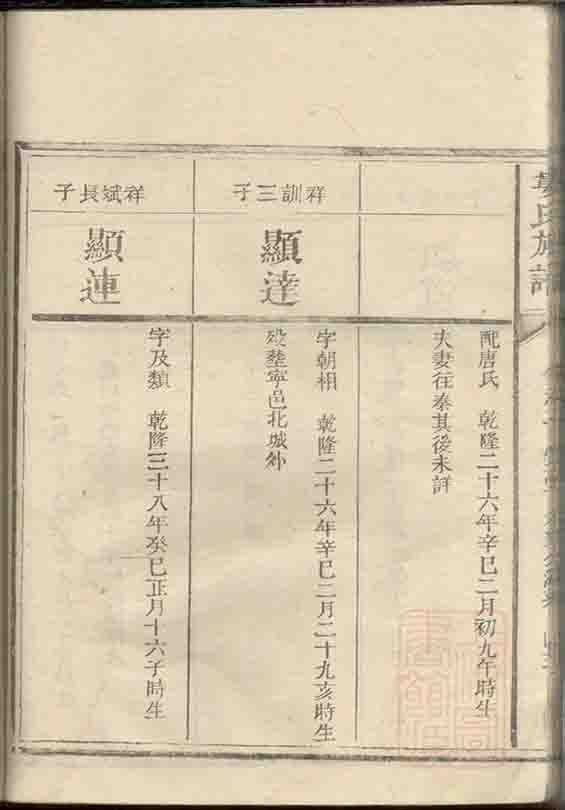 氏族譜
配唐氏 乾隆二十六年辛巳二月初九午時生
夫妻往秦其後未詳
祥訓三子
顯達
字朝相 乾隆二十六年辛巳二月二十九亥時生
歿塟寧邑北城外
祥斌長子
顯連
字及類 乾隆三十八年癸巳正月十六子時生